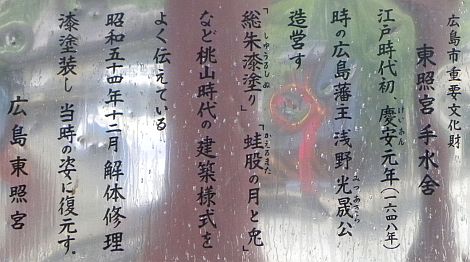 広島市重要文化財
東照宮 手水舎
江戸時代初 慶安元年(一六四八年)
けいあん
時の広島藩主 浅野光晟公
みつあきら
造営す
「総朱漆塗り」「蛙股の月と兎」
しゅうるしぬ
かえるまた
など桃山時代の建築様式を
よく伝えている
昭和五十四年十二月 解体修理
漆塗装し 当時の姿に復元す.
広島東照宮